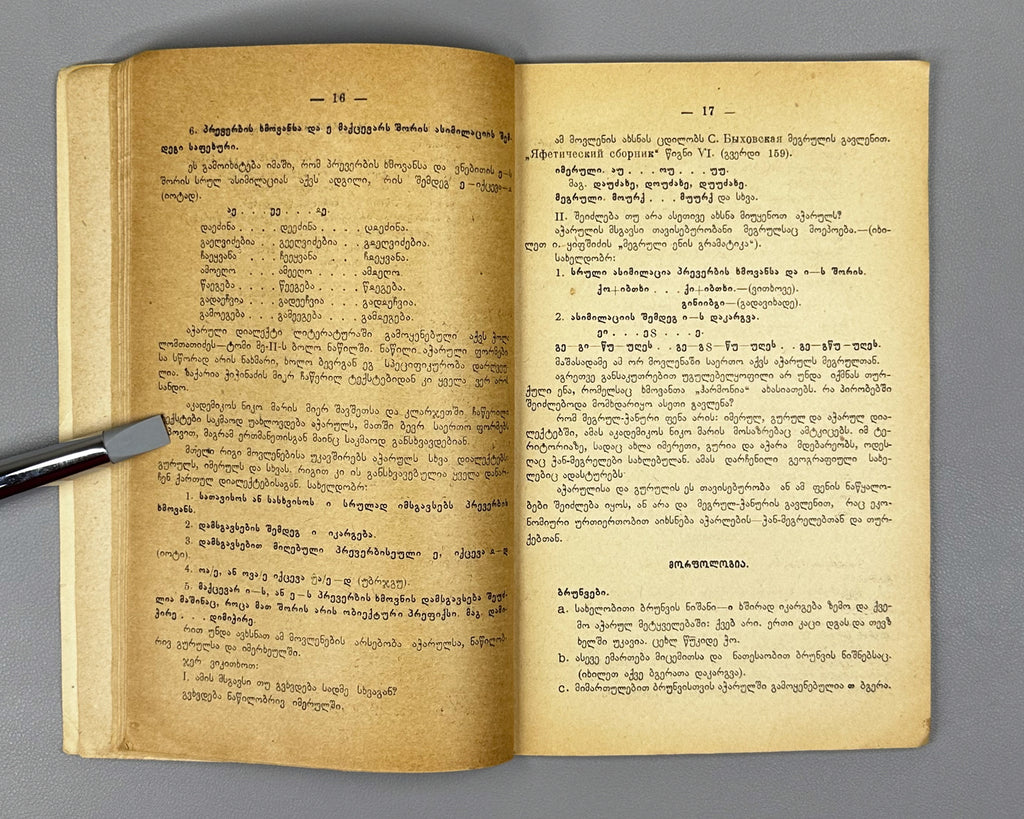 — 16 —
6. პრევერბის ხმოვანსა და ე მაქცევარს შორის ასიმილაციის შემ-
დეგი საფეხური.
ეს გამოიხატება იმაში, რომ პრევერბის ხმოვანსა და ვნებითის ე—ს
შორის სრულ ასიმილაციას აქვს ადგილი, რის შემდეგ ე—იქცევა
(იოტად).
დაეძინა . . . . დეეძინა . . . .
გაეღვიძებია . გეეღვიძებია .
ჩაეყვანა . . . ჩეეყვანა . . .
ამოეღო . . . ამეეღო . . .
წაეგება . . . წეეგება . . .
გადაეჩვია . . . გადეეჩვია . . .
გამოეგება. . . გამეეგება . . .
აჭარული დიალექტი ლიტერატურაში გამოყენებული აქვს
ლომთათიძეს—ტომი მე-II-ს ბოლო ნაწილში. ნაწილი აჭარული ფორმები-
სა სწორად არის ნახმარი, ხოლო ბევრგან ეგ სპეციფიკურობა
ლია. ზაქარია ჭიჭინაძის მიერ ჩაწერილ ტექსტებიდან კი ყველა ვერ არის
სანდო.
აკადემიკოს ნიკო მარის მიერ შავშეთსა და კლარჯეთში. ჩაწერილი
ტექსტები საკმაოდ უახლოვდება აჭარულს, მათში ბევრ საერთო ფორმებს
მაგრამ ერთმანეთისგან მაინც საკმაოდ განსხვავდებიან.
მთელი რიგი მოვლენებისა უკავშირებს აჭარულს სხვა დიალექტებს:
გურულს, იმერულს და სხვას. რიგით კი ის განსხვავებულია ყველა დანარ-
ჩენ ქართულ დიალექტებისაგან. სახელდობრ:
1. სათავისოს ან სასხვისოს ი სრულად იმსგავსებს პრევერბის
ხმოვანს.
2. დამსგავსების შემდეგ ი იკარგება.
3. დამსგავსებით მიღებული პრევერბისეული ე, იქცევა
(იოტი).
4. ოა/ე, ან ოვა/ე იქცევა
5. მაქცევარ ი—ს, ან ე—ს პრევერბის ხმოვნის დამსგავსება შეუძ-
ლია მაშინაც, როცა მათ შორის არის ობიექტური პრეფიქსი. მაგ. დამი-
ჭირე . . . დიმიჭირე.
რით უნდა ავხსნათ ამ მოვლენების არსებობა აჭარულსა, ნაწილობ-
რივ გურულსა და იმერხეულში.
ჯერ ვიკითხოთ:
I. ამის მსგავსი თუ გვხვდება სადმე სხვაგან?
გვხვდება ნაწილობრივ იმერულში.
— 17 —
ამ მოვლენის ახსნას ცდილობს С. Быховская მეგრულის გავლენით.
„Яфетический сборник“ წიგნი VI. (გვერდი 159).
იმერული. აუ . . . ოუ . . . უუ.
მაგ. დაუძახე, დოუძახე, დუუძახე.
მეგრული. მოურქ . . . მუურქ და სხვა.
II. შეიძლება თუ არა ასეთივე ახსნა მიუყენოთ აჭარულს?
აჭარულის მსგავსი თავისებურობანი მეგრულსაც მოეპოება.—(იხი-
ლეთ ი. ყიფშიძის „მეგრული ენის გრამატიკა“).
სახელდობრ:
1. სრული ასიმილაცია პრევერბის ხმოვანსა და ი—ს შორის.
ქო+იბთხი . . . ქი+იბთხი.—(ვითხოვე).
გინიიბგი—(გადავიხადე).
2. ასიმილაციის შემდეგ ი—ს დაკარგვა.
გე—გი—წუ—უღეს . . გე—გ8—წუ—უღეს . . გე—გწუ—უღეს.
მაშასადამე ამ ორ მოვლენაში საერთო აქვს აჭარულს მეგრულთან.
აგრეთვე განსაკუთრებით უგულებელყოფილი არ უნდა იქმნას თურ-
ქული ენა, რომელსაც ხმოვანთა „ჰარმონია“ ახასიათებს. რა პირობებში
შეიძლებოდა მომხდარიყო ასეთი გავლენა?
რომ მეგრულ-ჭანური ფენა არის: იმერულ, გურულ და აჭარულ დია-
ლექტებში, ამას აკადემიკოს ნიკო მარის მოსაზრებაც ამტკიცებს. იმ ტე-
რიტორიაზე, სადაც ახლა იმერეთი, გურია და აჭარა მდებარეობს, ოდეს-
ღაც ჭან-მეგრელები სახლებულან. ამას დარჩენილი გეოგრაფიული სახე-
ლებიც ადასტურებს
აჭარულისა და გურულის ეს თავისებურობა ან ამ ფენის ნაწყალო-
ბები შეიძლება იყოს, ან არა და მეგრულ-ჭანურის გავლენით, რაც ეკო-
ნომიური ურთიერთობით აიხსნება აჭარლების—ჭან-მეგრელებთან და თურ-
ქებთან.
მორფოლოგია.
ბრუნვები.
a. სახელობითი ბრუნვის ნიშანი—ი ხშირად იკარგება ზემო და ქვე-
მო აჭარულ მეტყველებაში: ქვებ არი. ერთი კაცი დგას და თევზ
ხელში უკავია. ცეხლ წუკიდე ქო.
b. ასევე ემართება მიცემითსა და ნათესაობით ბრუნვის ნიშნებსაც.
(იხილეთ აქვე ბგერათა დაკარგვა).
c. მიმართულებით ბრუნვისთვის აჭარულში გამოყენებულია თ ბგერა.